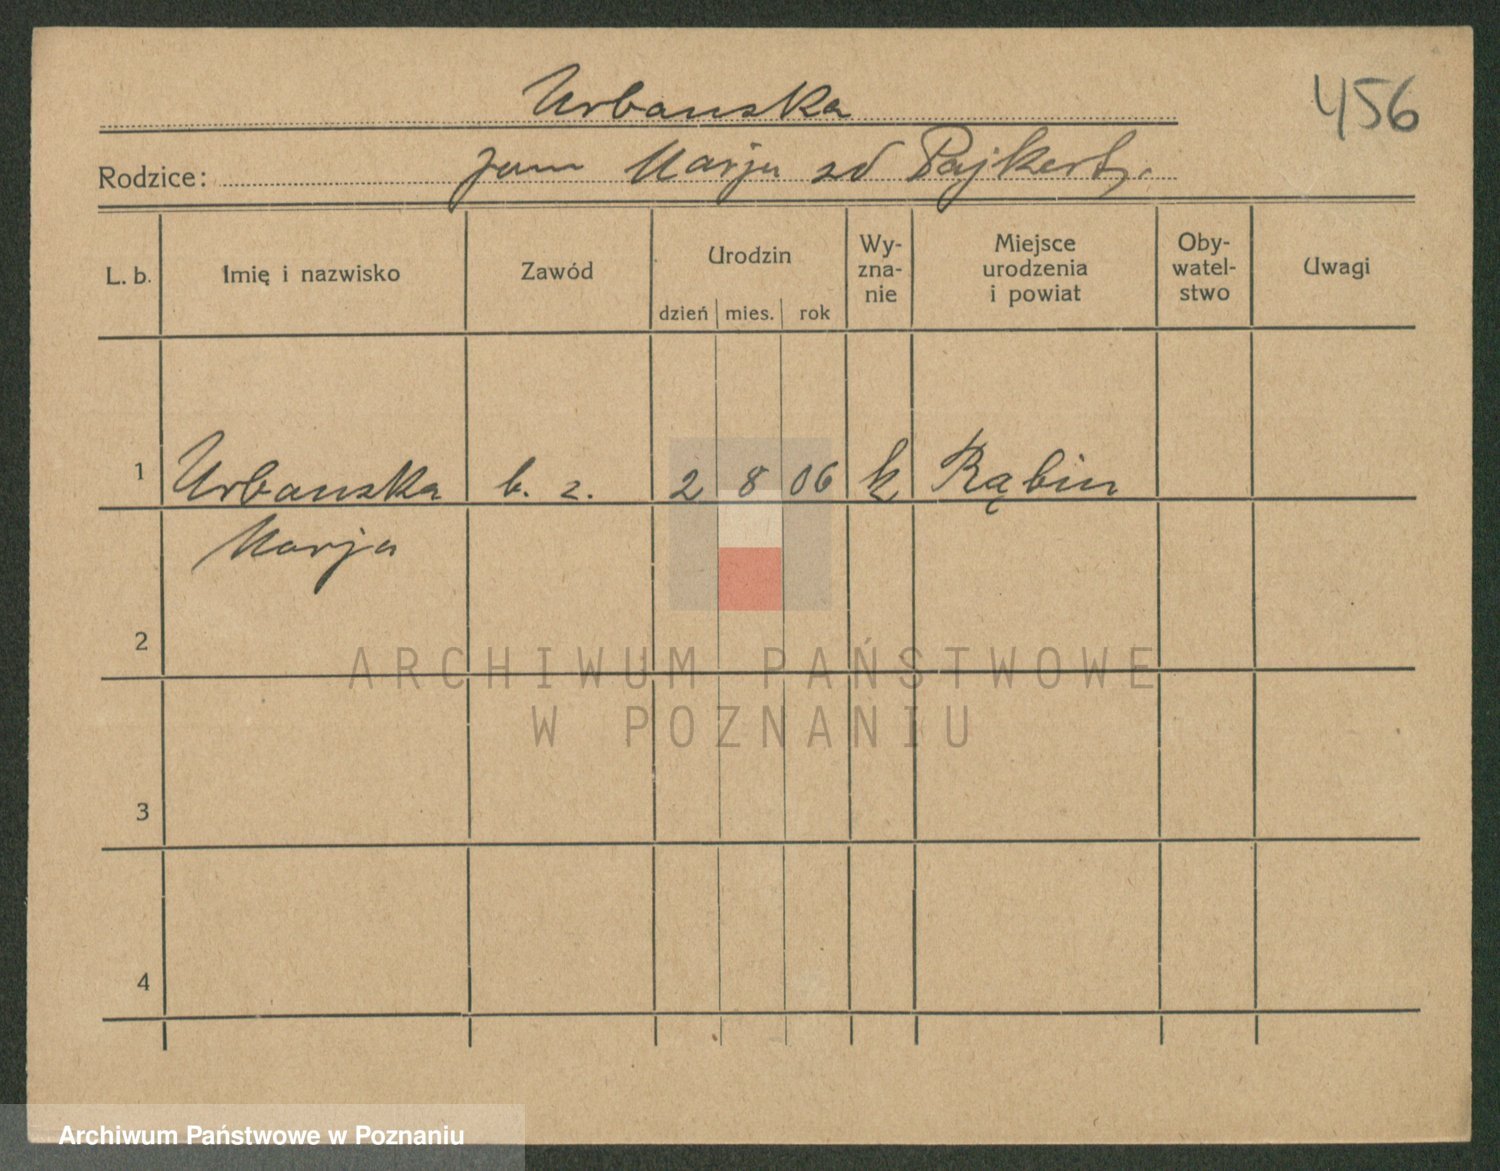 Urbanska
456
Rodzice: Jan Marja zd Pajkert.
L. b. Imię i nazwisko Zawód Urodzin Wy-zna-nie Miejsce urodzenia i powiat Oby-watel-stwo Uwagi
dzień mies. rok
1 Urbanska b. z. 2 8 06 k Rąbin
Marja
2
ARCHIWUM PAŃSTWOWE
W POZNANIU
3
4
Archiwum Państwowe w Poznaniu